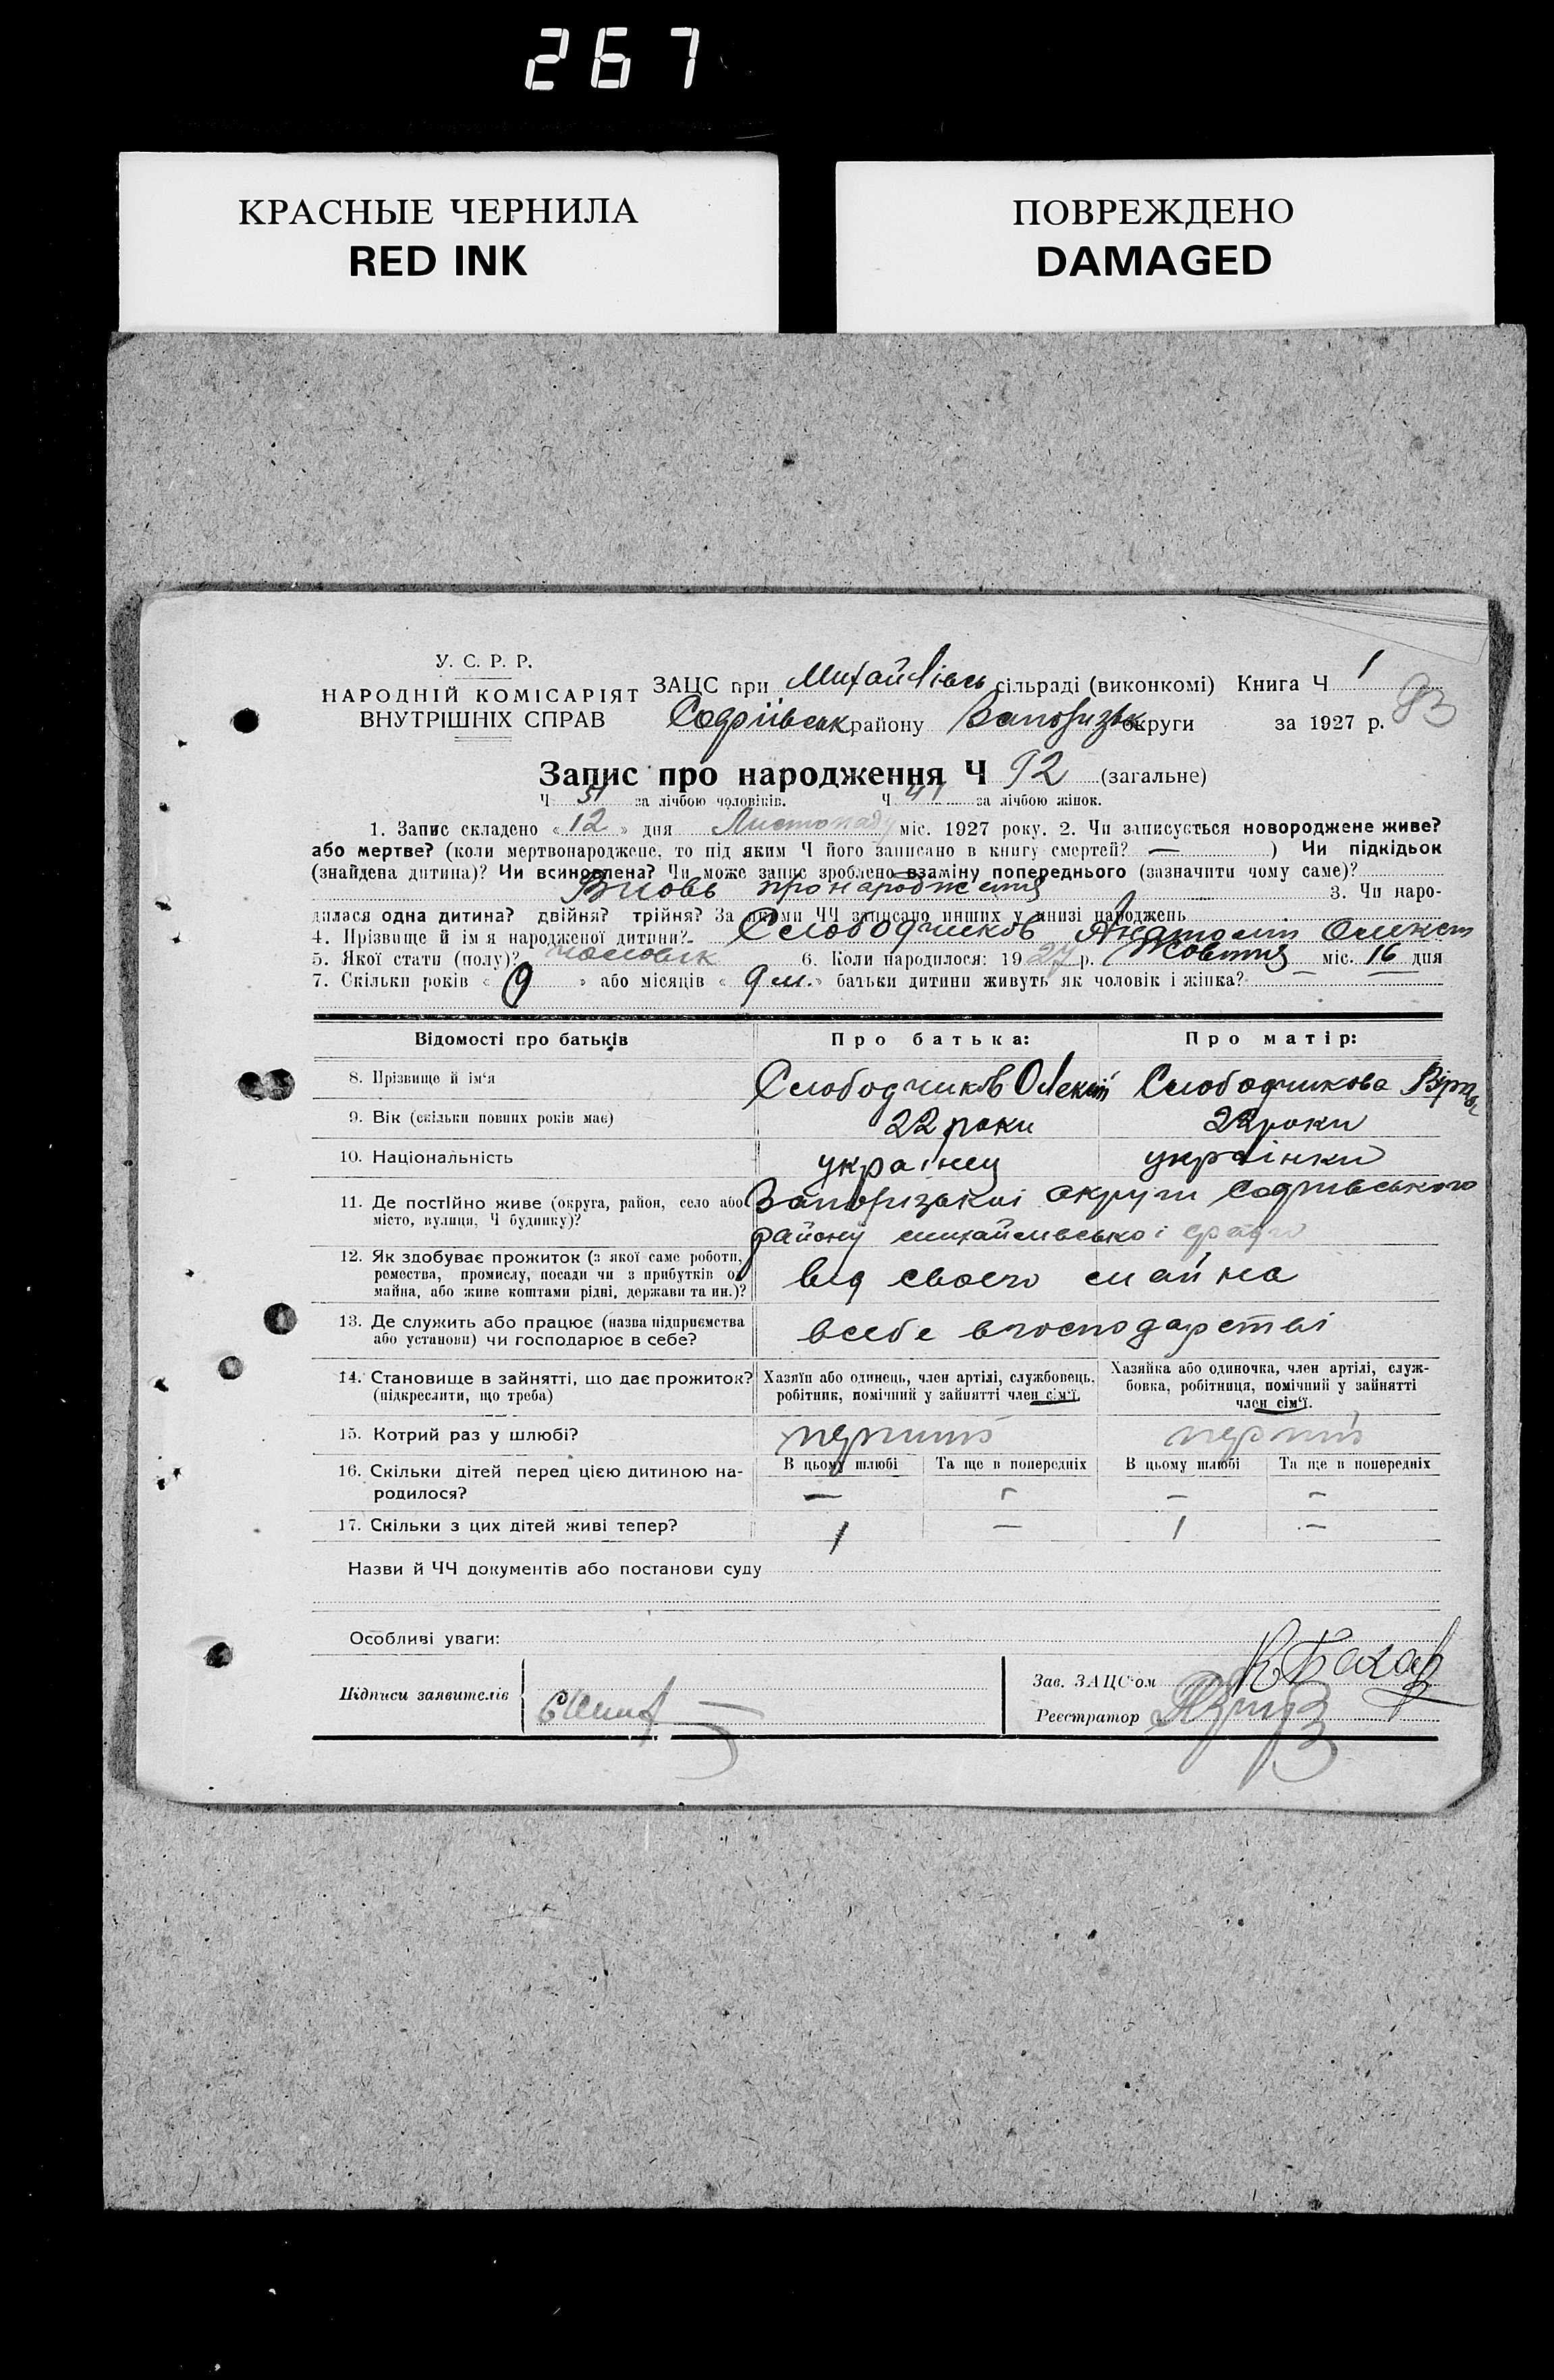 267
КРАСНЫЕ ЧЕРНИЛА
RED INK
ПОВРЕЖДЕНО
DAMAGED
У. С. Р. Р.
НАРОДНІЙ КОМІСАРІЯТ
ВНУТРІШНІХ СПРАВ
ЗАЦС при Михайлівсь сільраді (виконкомі) Книга Ч 1
району округи за 1927 р. 93
Запис про народження Ч 92 (загальне)
Ч 51 за лічбою чоловіків. Ч 41 за лічбою жінок.
1. Запис складено «12» дня Листопаду міс. 1927 року. 2. Чи записується новороджене живе?
або мертве? (коли мертвонароджене, то під яким Ч його записано в книгу смертей? — ) Чи підкідьок
(знайдена дитина)? Чи всиновлена? Чи може запис зроблено взаміну попереднього (зазначити чому саме)?
Вновь про народження 3. Чи наро-
дилася одна дитина? двійня? трійня? За якими ЧЧ записано инших у книзі народжень
4. Прізвище й ім'я народженої дитини? Слободчиков Анатолій
5. Якої стати (полу)? чоловік 6. Коли народилося: 1927 р. Жовтня міс. 16 дня
7. Скільки років « 9 » або місяців « 9 м. » батьки дитини живуть як чоловік і жінка? —
Відомості про батьків Про батька: Про матір:
8. Прізвище й ім'я Слободчиков Олексій Слободчикова Віра
9. Вік (скільки повних років має) 22 роки 22 роки
10. Національність українец українки
11. Де постійно живе (округа, район, село або Запорізькоі округи
місто, вулиця, Ч будинку)? району михайлівськоі
12. Як здобуває прожиток (з якої саме роботи,
ремества, промислу, посади чи з прибутків од
майна, або живе коштами рідні, держави та ин.)? від своего майна
13. Де служить або працює (назва підприємства
або установи) чи господарює в себе? всебе вгосподарстві
14. Становище в зайнятті, що дає прожиток? Хазяїн або одинець, член артілі, службовець, Хазяйка або одиночка, член артілі, служ-
(підкреслити, що треба) робітник, помічний у зайнятті член сім'ї. бовка, робітниця, помічний у зайнятті
член сім'ї.
15. Котрий раз у шлюбі?
16. Скільки дітей перед цією дитиною на- В цьому шлюбі Та ще в попередніх В цьому шлюбі Та ще в попередніх
родилося? — — — —
17. Скільки з цих дітей живі тепер? 1 — 1 —
Назви й ЧЧ документів або постанови суду
Особливі уваги:
Підписи заявителів
Зав. ЗАЦС'ом
Реєстратор